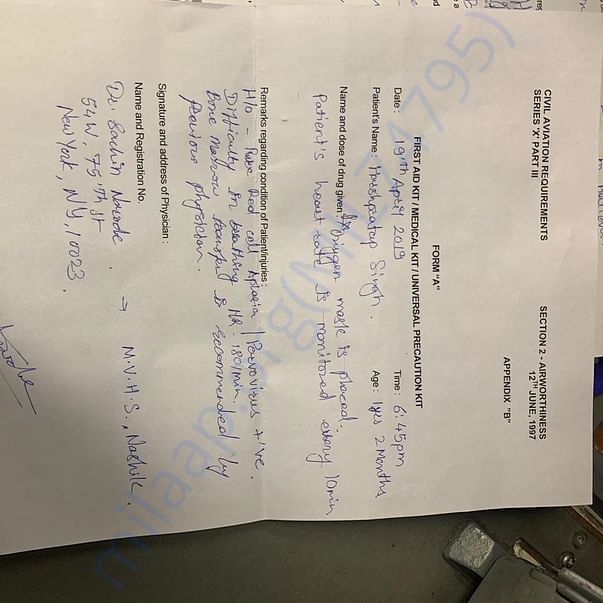 CIVIL AVIATION REQUIREMENTS
SERIES 'X' PART III
SECTION 2 - AIRWORTHINESS
12TH JUNE, 1997
APPENDIX "B"
FORM "A"
FIRST AID KIT / MEDICAL KIT / UNIVERSAL PRECAUTION KIT
Date : 19Th April 2019 Time : 6:45pm
Patient's Name : Harshpratap Singh. Age : 1yrs 2 Months
Name and dose of drug given : Oxygen mask is placed.
Patient's heart rate is monitored every 10min
Remarks regarding condition of Patient/injuries :
H/o - Pure Red cell Aplasia / Parvovirus +'ve.
Difficulty in breathing HR: 180/min.
Bone marrow transfer is recommended by
previous physician.
Signature and address of Physician :
Name and Registration No.
Dr. Sachin → M.V.H.S., Nashik.
54 W. 75Th St
New York, NY, 10023.
milaap.org